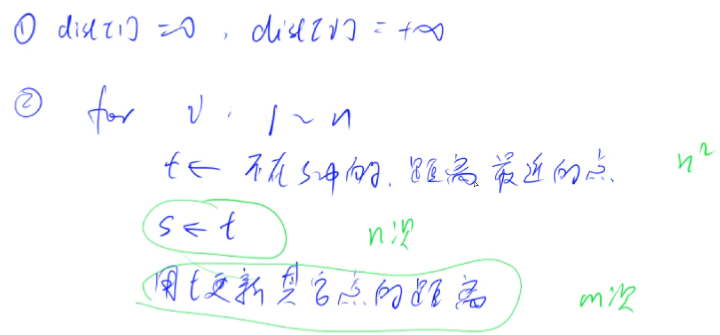 ① dist[1] = 0, dist[v] = +∞
② for v: 1 ~ n
t ← 不在s中的, 距离最近的点. n²
s ← t n次
用t更新其它点的距离 m次